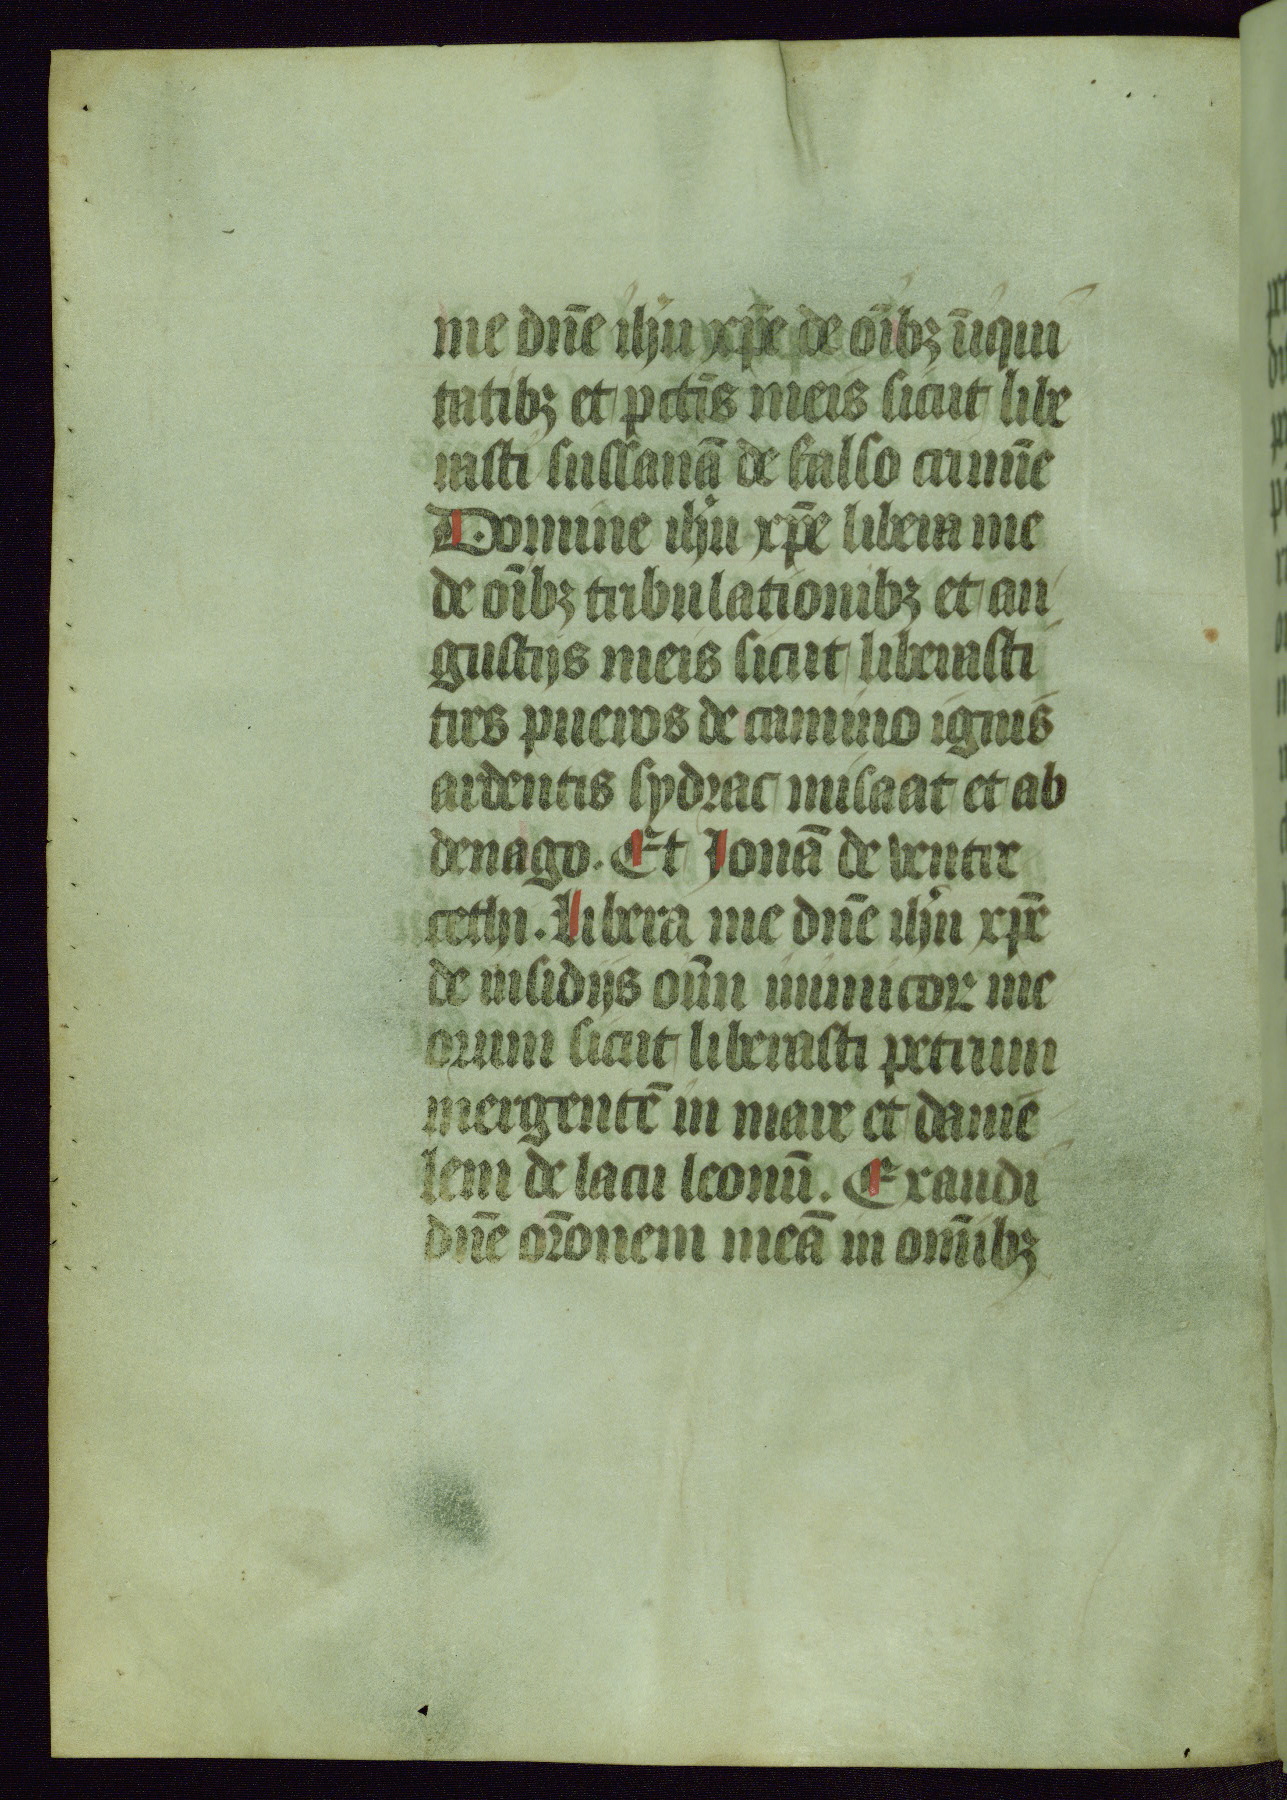 me dn̄e ihu xp̄e de oībꝫ īiqui
tatibꝫ et pctīs meis sicut libe
rasti sussanā de falso crimīe
Domine ihu xp̄e libera me
de oībꝫ tribulationibꝫ et an
gustijs meis sicut liberasti
tres pueros de camino ignis
ardentis sydrac misaat et ab
denago. Et Jonā de ventre
cethi. Libera me dn̄e ihu xp̄e
de insidijs oīm inimicoꝝ me
orum sicut liberasti petrum
mergentē in mare et danie
lem de lacu leonū. Exaudi
dn̄e or̄onem meā in omībꝫ